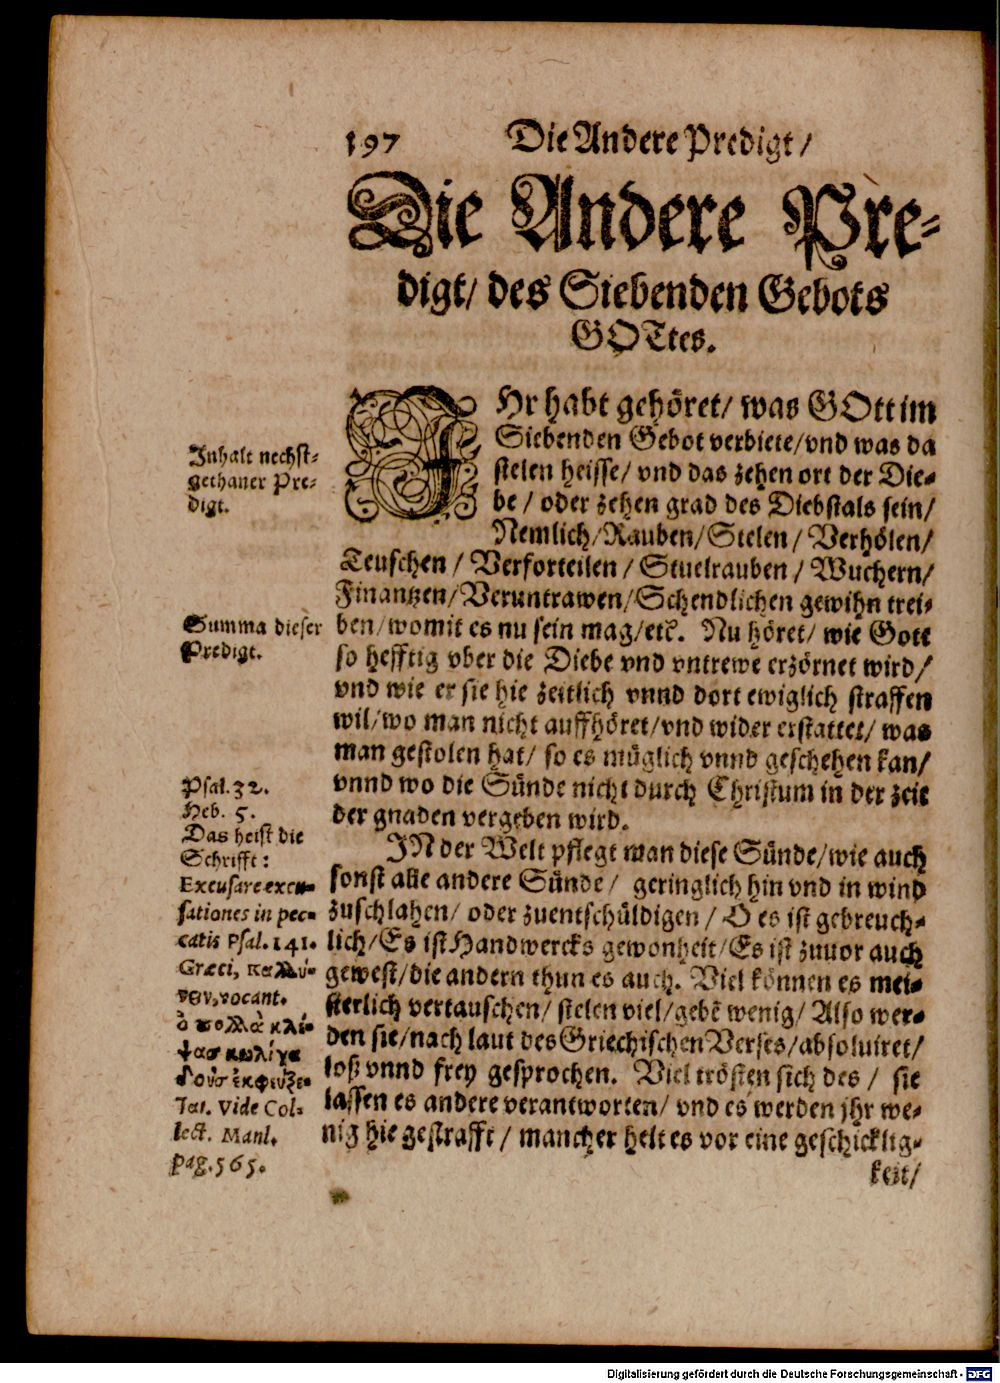 197 Die Andere Predigt/
Die Andere Pre-
digt/ des Siebenden Gebots
GOTtes.
IHr habt gehöret/ was GOtt im
Siebenden Gebot verbiete/vnd was da
stelen heisse/ vnd das zehen ort der Die-
be / oder zehen grad des Diebstals sein/
Nemlich/Rauben/Stelen/ Verhölen/
Teuschen / Verforteilen / Stuelrauben / Wuchern/
Finantzen/Veruntrawen/Schendlichen gewihn trei-
ben/womit es nu sein mag/etc. Nu höret/ wie Gott
so hefftig vber die Diebe vnd vntrewe erzörnet wird/
vnd wie er sie hie zeitlich vnnd dort ewiglich straffen
wil/wo man nicht auffhöret/vnd wider erstattet/ was
man gestolen hat/ so es müglich vnnd geschehen kan/
vnnd wo die Sünde nicht durch Christum in der zeit
der gnaden vergeben wird.
IN der Welt pflegt man diese Sünde/wie auch
sonst alle andere Sünde/ geringlich hin vnd in wind
zuschlahen/ oder zuentschüldigen / O es ist gebreuch-
lich/Es ist Handwercks gewonheit/Es ist zuuor auch
gewest/die andern thun es auch. Viel können es mei-
sterlich vertauschen/ stelen viel/gebē wenig/ Also wer-
den sie/nach laut des Griechischen Verses/absoluiret/
loß vnnd frey gesprochen. Viel trösten sich des / sie
lassen es andere verantworten/ vnd es werden jhr we-
nig hie gestrafft / mancher helt es vor eine geschicklig-
keit/
Inhalt nechst-
gethaner Pre-
digt.
Summa dieser
Predigt.
Psal. 32.
Heb. 5.
Das heist die
Schrifft:
Excusare excu-
sationes in pec-
catis Psal. 141.
Græci, καλλύ-
νειν, vocant.
ὁ πολλὰ κλέ-
ψασ κωλίγα
δοὺσ ἐκφεύξε-
ται. Vide Col-
lect. Manl.
pag. 565.
Digitalisierung gefördert durch die Deutsche Forschungsgemeinschaft - DFG